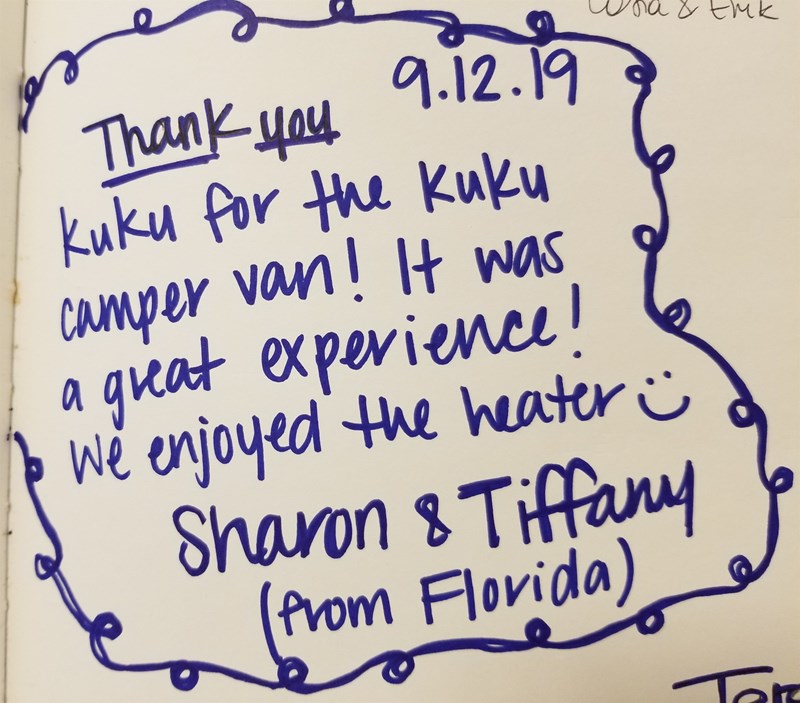 & Erik
9.12.19
Thank you
kuku for the kuku
camper van! It was
a great experience!
We enjoyed the heater
Sharon & Tiffany
(from Florida)